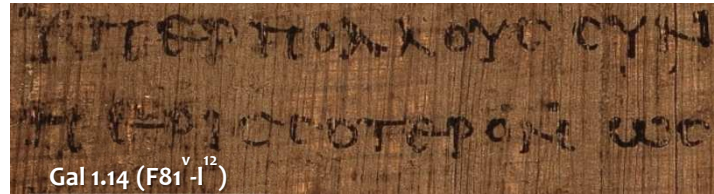 ϒΠΕΡΠΟΛΛΟΥϹ ϹΥΝ
ΠΕΡΙϹϹΟΤΕΡΟΝ ωϹ
Gal 1.14 (F81v-l12)